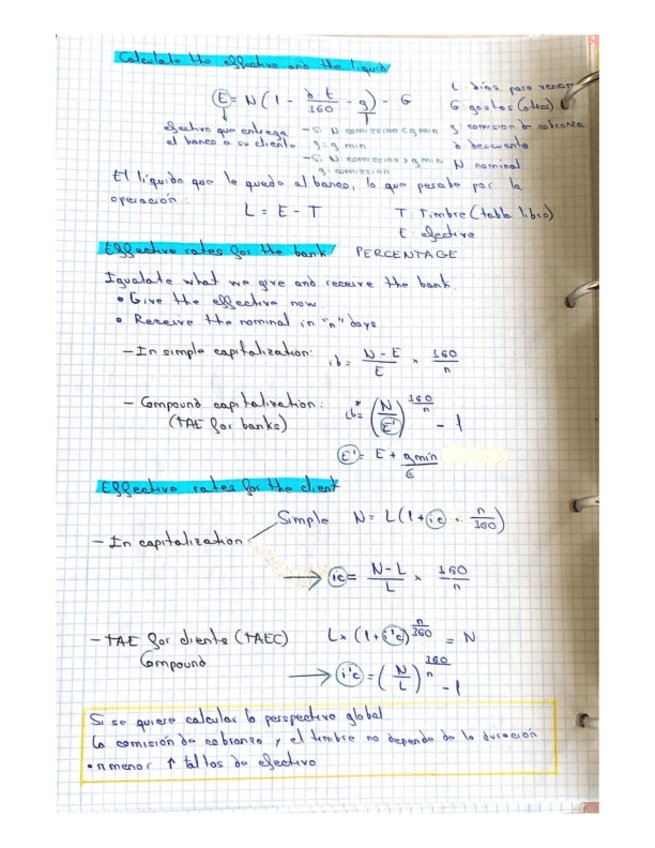 Calculate the effective and the liquid
E = N (1 - d·t/360 - g) - G
t: días para vencer
G: gastos (otros)
g: comision de cobranza
d: descuento
N nominal
efectivo que entrega
el banco a su cliente
- Si N comission < g min
g = g min
- Si N · comission > g min
g: comission
El líquido que le queda al banco, lo que pesaba por la
operación:
L = E - T
T: Timbre (tabla libro)
E: efective
Effective rates for the bank PERCENTAGE
Igualate what we give and receive the bank.
• Give the effective now.
• Receive the nominal in "n" days
- In simple capitalization: ib = N - E / E × 360 / n
- Compound capitalization: ib* = (N / E')^360/n - 1
(TAE for banks)
E' = E + gmin / 6
Effective rates for the client
Simple N = L (1 + ic · n/360)
- In capitalization
→ ic = N - L / L × 360 / n
- TAE for clients (TAEC) L × (1 + i'c)^n/360 = N
Compound
→ i'c = (N / L)^360/n - 1
Si se quiere calcular la perspectiva global
la comisión de cobranza y el timbre no depende de la duración
• n menor ↑ tal tos de efectivo